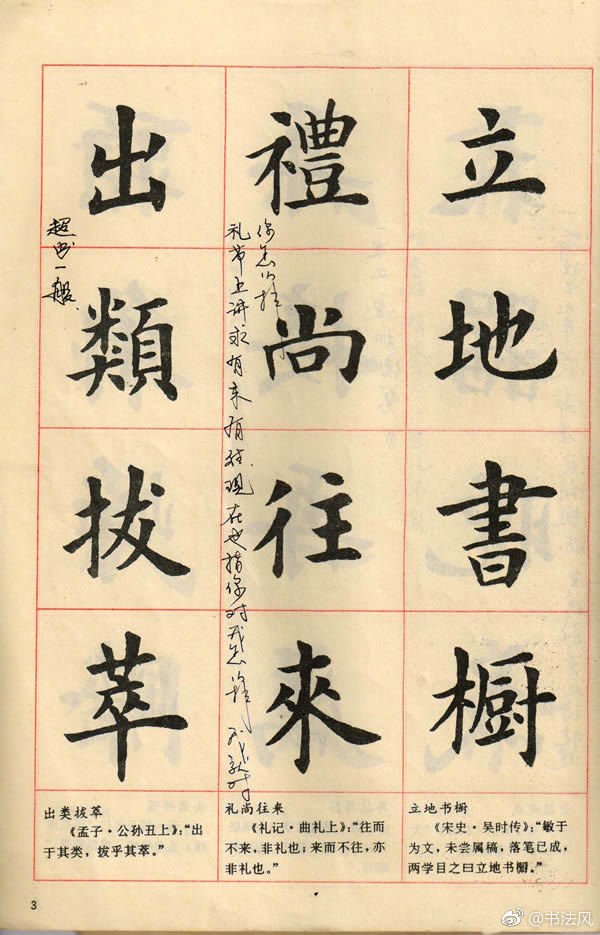 立地書橱
禮尚往來
出類拔萃
礼节上讲求有来有往现在也指你对我怎么样 我就对
你怎么样
超出一般
立地书橱
《宋史·吴时传》：“敏于
为文，未尝属稿，落笔已成，
两学目之曰立地书橱。”
礼尚往来
《礼记·曲礼上》：“往而
不来，非礼也；来而不往，亦
非礼也。”
出类拔萃
《孟子·公孙丑上》：“出
于其类，拔乎其萃。”
3
@书法风